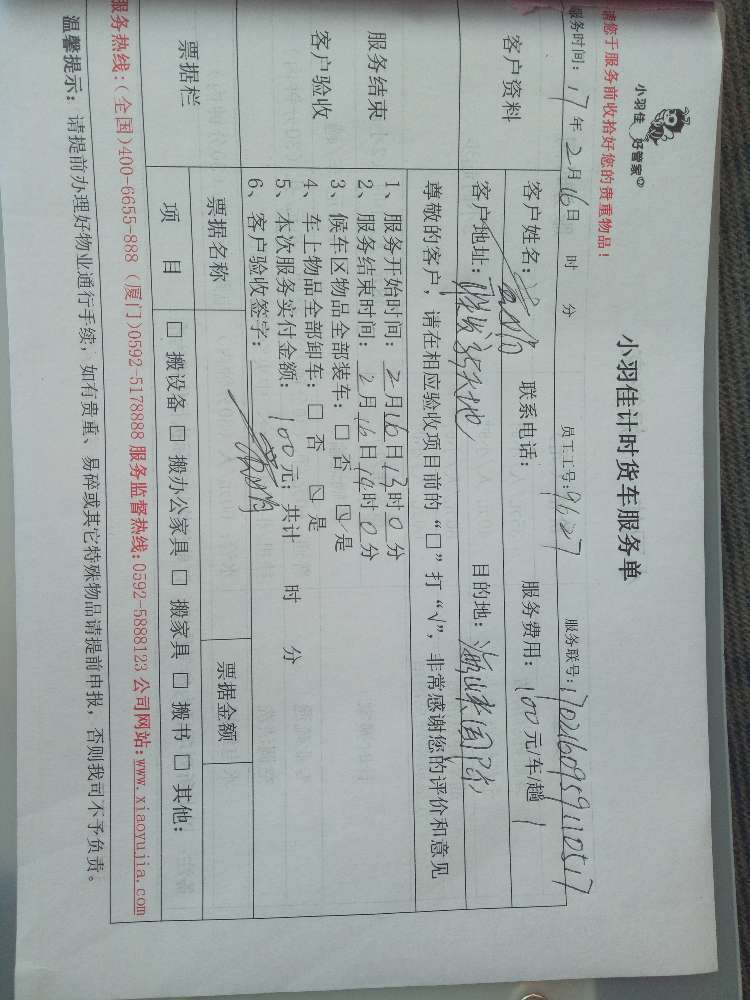 小羽佳 好管家
请您于服务前收拾好您的贵重物品！
小羽佳计时货车服务单
服务时间：17年2月16日 时 分 员工工号：9627 服务联号：170216095911051
客户资料
客户姓名： 联系电话： 服务费用：100元/车/趟
客户地址： 新天地 目的地：
尊敬的客户，请在相应验收项目前的“□”打“√”，非常感谢您的评价和意见
服务结束
客户验收
1、服务开始时间：2月16日13时0分
2、服务结束时间：2月16日14时0分
3、候车区物品全部装车：□ 否 ☑ 是
4、车上物品全部卸车：□ 否 ☑ 是
5、本次服务实付金额：100元；共计 时 分
6、客户验收签字：
票据栏
票据名称 票据金额
项 目 □ 搬设备 □ 搬办公家具 □ 搬家具 □ 搬书 □ 其他：
服务热线：(全国)400-6655-888 (厦门)0592-5178888 服务监督热线：0592-5888123 公司网站：www.xiaoyujia.com
温馨提示：请提前办理好物业通行手续，如有贵重、易碎或其它特殊物品请提前申报，否则我司不予负责。